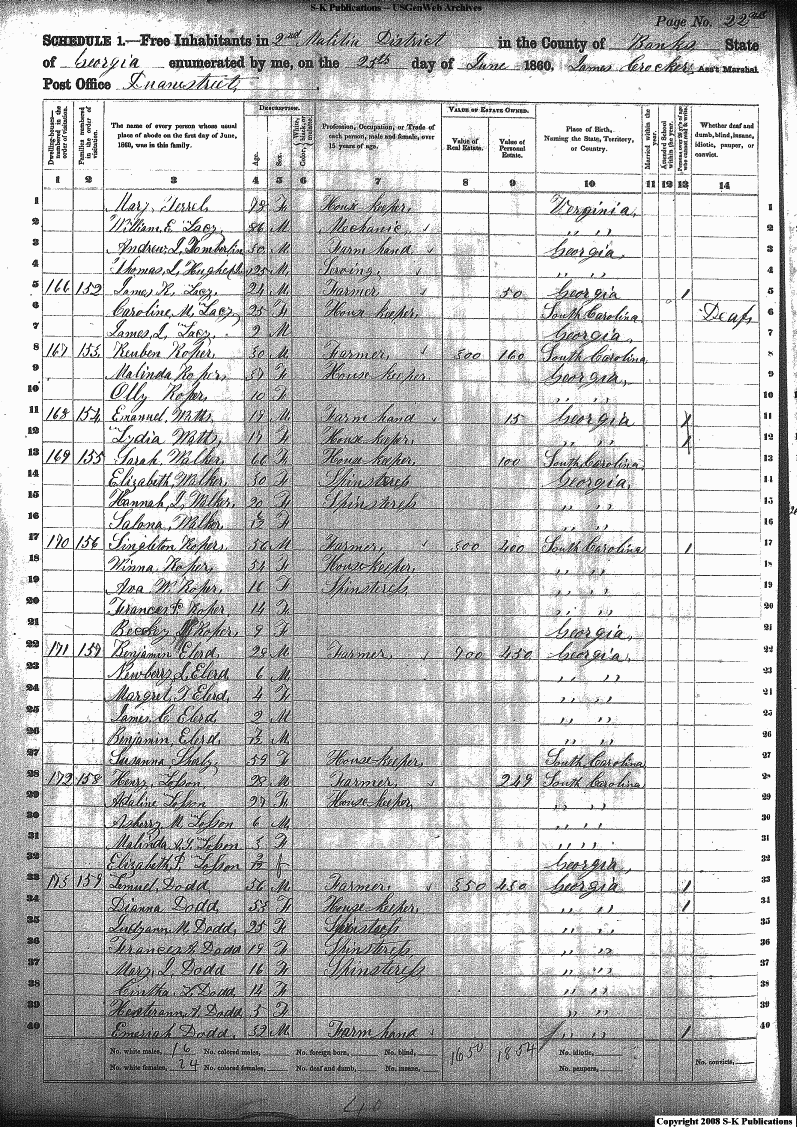 S-K Publications -- USGenWeb Archives
Page No. 22
SCHEDULE 1.—Free Inhabitants in 2nd Malitia District in the County of Banks State
of Georgia enumerated by me, on the 25th day of June 1860. James Crocker Ass't Marshal
Post Office
Dwelling-houses— numbered in the order of visitation.
Families numbered in the order of visitation.
The name of every person whose usual place of abode on the first day of June, 1860, was in this family.
DESCRIPTION.
Age.
Sex.
Color, White, black, or mulatto.
Profession, Occupation, or Trade of each person, male and female, over 15 years of age.
VALUE OF ESTATE OWNED.
Value of Real Estate.
Value of Personal Estate.
Place of Birth, Naming the State, Territory, or Country.
Married within the year.
Attended School within the year.
Persons over 20 y'rs of age who cannot read & write.
Whether deaf and dumb, blind, insane, idiotic, pauper, or convict.
1 2 3 4 5 6 7 8 9 10 11 12 13 14
1 Mary F House keeper Verginia 1
2 William E. Lacy M Mechanic " " 2
3 Andrew J. Tomberlin 30 M Farm hand Georgia 3
4 Thomas L. 25 M " " 4
5 166 152 James H. Lacy 24 M Farmer 50 Georgia 1 5
6 Caroline M. Lacy 25 F House keeper South Carolina Deaf 6
7 James L. Lacy 2 M Georgia 7
8 167 153 Reuben Roper 30 M Farmer 300 160 South Carolina 8
9 Malinda Roper 37 F House keeper Georgia 9
10 Olly Roper 10 F " " 10
11 168 154 Emanuel Watts 19 M Farm hand 15 Georgia 1 11
12 Lydia Watts 17 F House keeper " " 1 12
13 169 155 Sarah Walker 60 F House keeper 100 South Carolina 13
14 Elizabeth Walker 30 F Spinsteress Georgia 14
15 Hannah J. Walker 20 F Spinsteress " " 15
16 Salona Walker F " " 16
17 170 156 Singleton Roper 56 M Farmer 300 200 South Carolina 1 17
18 Vinna Roper 54 F House keeper " " 18
19 Ava W. Roper 16 F Spinsteress " " 19
20 Frances Roper 14 F " " 20
21 Roper 9 F Georgia 21
22 171 157 Benjamin Elerd 28 M Farmer 200 450 Georgia 22
23 Newberry L. Elerd 6 M " " 23
24 Margret T. Elerd 4 F " " 24
25 James C. Elerd 2 M " " 25
26 Benjamin Elerd M " " 26
27 Susanna 59 F House keeper South Carolina 27
28 172 158 Henry Lofson 28 M Farmer 249 South Carolina 28
29 Adaline Lofson 27 F House keeper " " 29
30 Asberry M. Lofson 6 M " " 30
31 Malinda Lofson 3 F " " 31
32 Elizabeth F. Lofson f Georgia 32
33 173 159 Lemuel Dodd 56 M Farmer 350 450 Georgia 1 33
34 Dianna Dodd 53 F House keeper " " 1 34
35 M. Dodd 25 F Spinstress " " 35
36 Frances A. Dodd 19 F Spinsteress " " 36
37 Mary J. Dodd 16 F Spinsteress " " 37
38 Cintha L. Dodd 14 F " " 38
39 Dodd 5 F " " 39
40 Dodd 32 M Farm hand " " 1 40
No. white males, 16 No. colored males, No. foreign born, No. blind, 1650 1854 No. idiotic,
No. white females, 24 No. colored females, No. deaf and dumb, No. insane, No. paupers, No. convicts,
40
Copyright 2008 S-K Publications